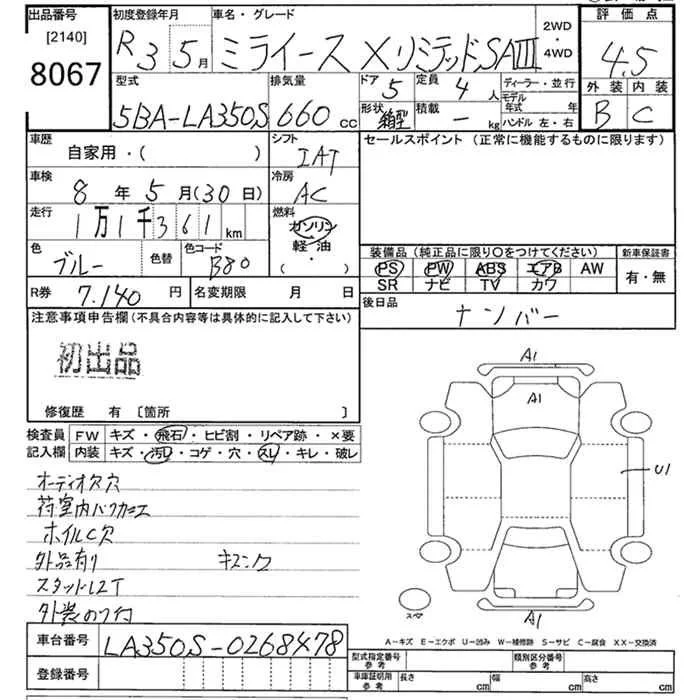 出品番号 初度登録年月 車名・グレード 2WD・4WD 評価点
[2140] 8067 R3 5月 ミライース Xリミテッド,SAⅢ 4.5
型式 排気量 ドア 5 定員 4人 ディーラー・並行 外装 内装
5BA-LA350S 660cc 形状 箱型 積載 - kg モデル年式 年 ハンドル 左・右 B C
車歴 自家用・( ) シフト IAT セールスポイント (正常に機能するものに限ります)
車検 8年5月(30日) 冷房 AC
走行 1万1千361km 燃料 ガソリン 軽油・( )
色 ブルー 色替 色コード B80 装備品 (純正品に限り○をつけてください) 新車保証書
PS PW ABS エアB AW 有・無
SR ナビ TV カワ
R券 7.140円 名変期限 月 日 後日品 ナンバー
注意事項申告欄(不具合内容等は具体的に記入して下さい)
初出品
修復歴 有 [箇所 ]
検査員 FW キズ・飛石・ヒビ割・リペア跡・×要
記入欄 内装 キズ・汚レ・コゲ・穴・スレ・キレ・破レ
オーディオ欠穴
荷室内
ホイルC欠
外品有り
A1
A1
U1
A1
スペア
A-キズ E-エクボ U-凹み W-補修跡 S-サビ C-腐食 XX-交換済
車台番号 LA350S-0268478
登録番号
型式指定番号 参考 類別区分番号 参考
車庫証明用 参考 長さ cm 幅 cm 高さ cm